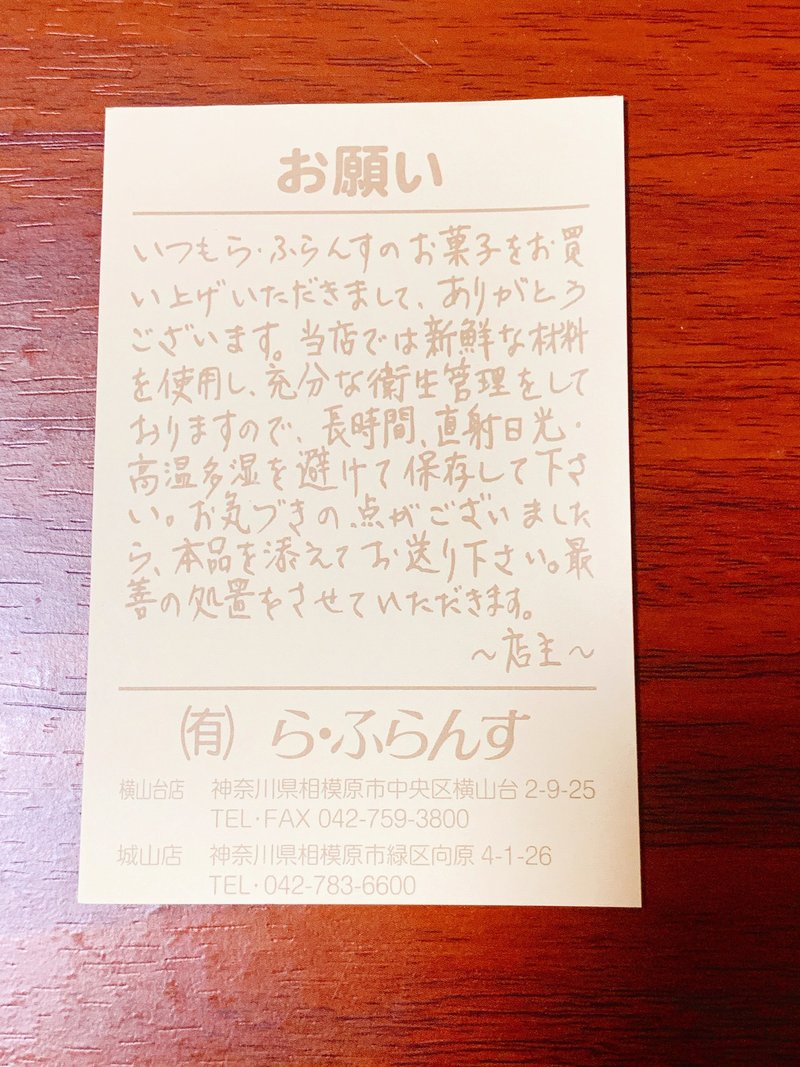 お願い
いつもら・ふらんすのお菓子をお買
い上げいただきまして、ありがとう
ございます。当店では新鮮な材料
を使用し、充分な衛生管理をして
おりますので、長時間、直射日光・
高温多湿を避けて保存して下さ
い。お気づきの点がございました
ら、本品を添えてお送り下さい。最
善の処置をさせていただきます。
～店主～
㈲ ら・ふらんす
横山台店 神奈川県相模原市中央区横山台 2-9-25
TEL・FAX 042-759-3800
城山店 神奈川県相模原市緑区向原 4-1-26
TEL・042-783-6600